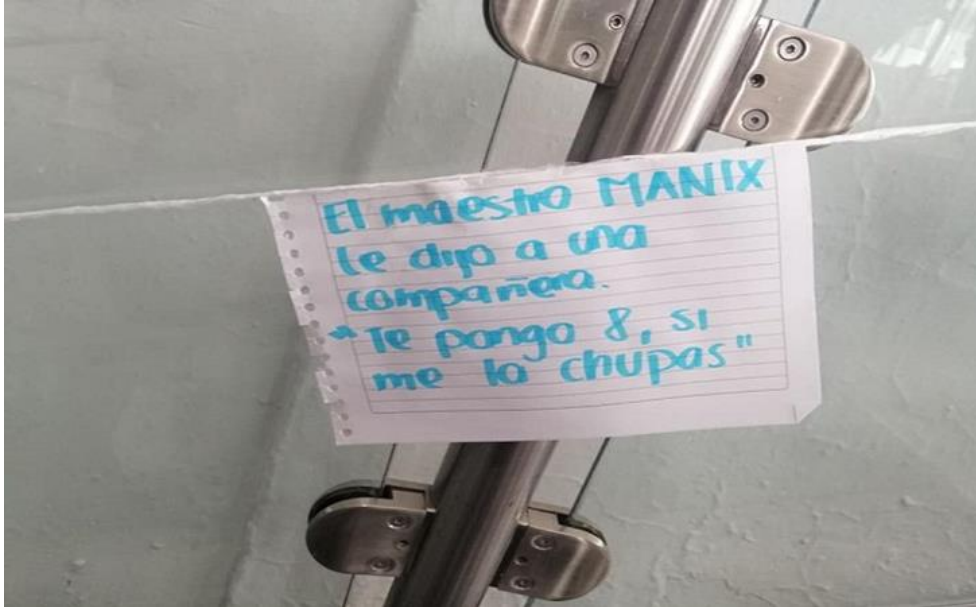 El maestro MANIX
le dijo a una
compañera.
"Te pongo 8, si
me la chupas"